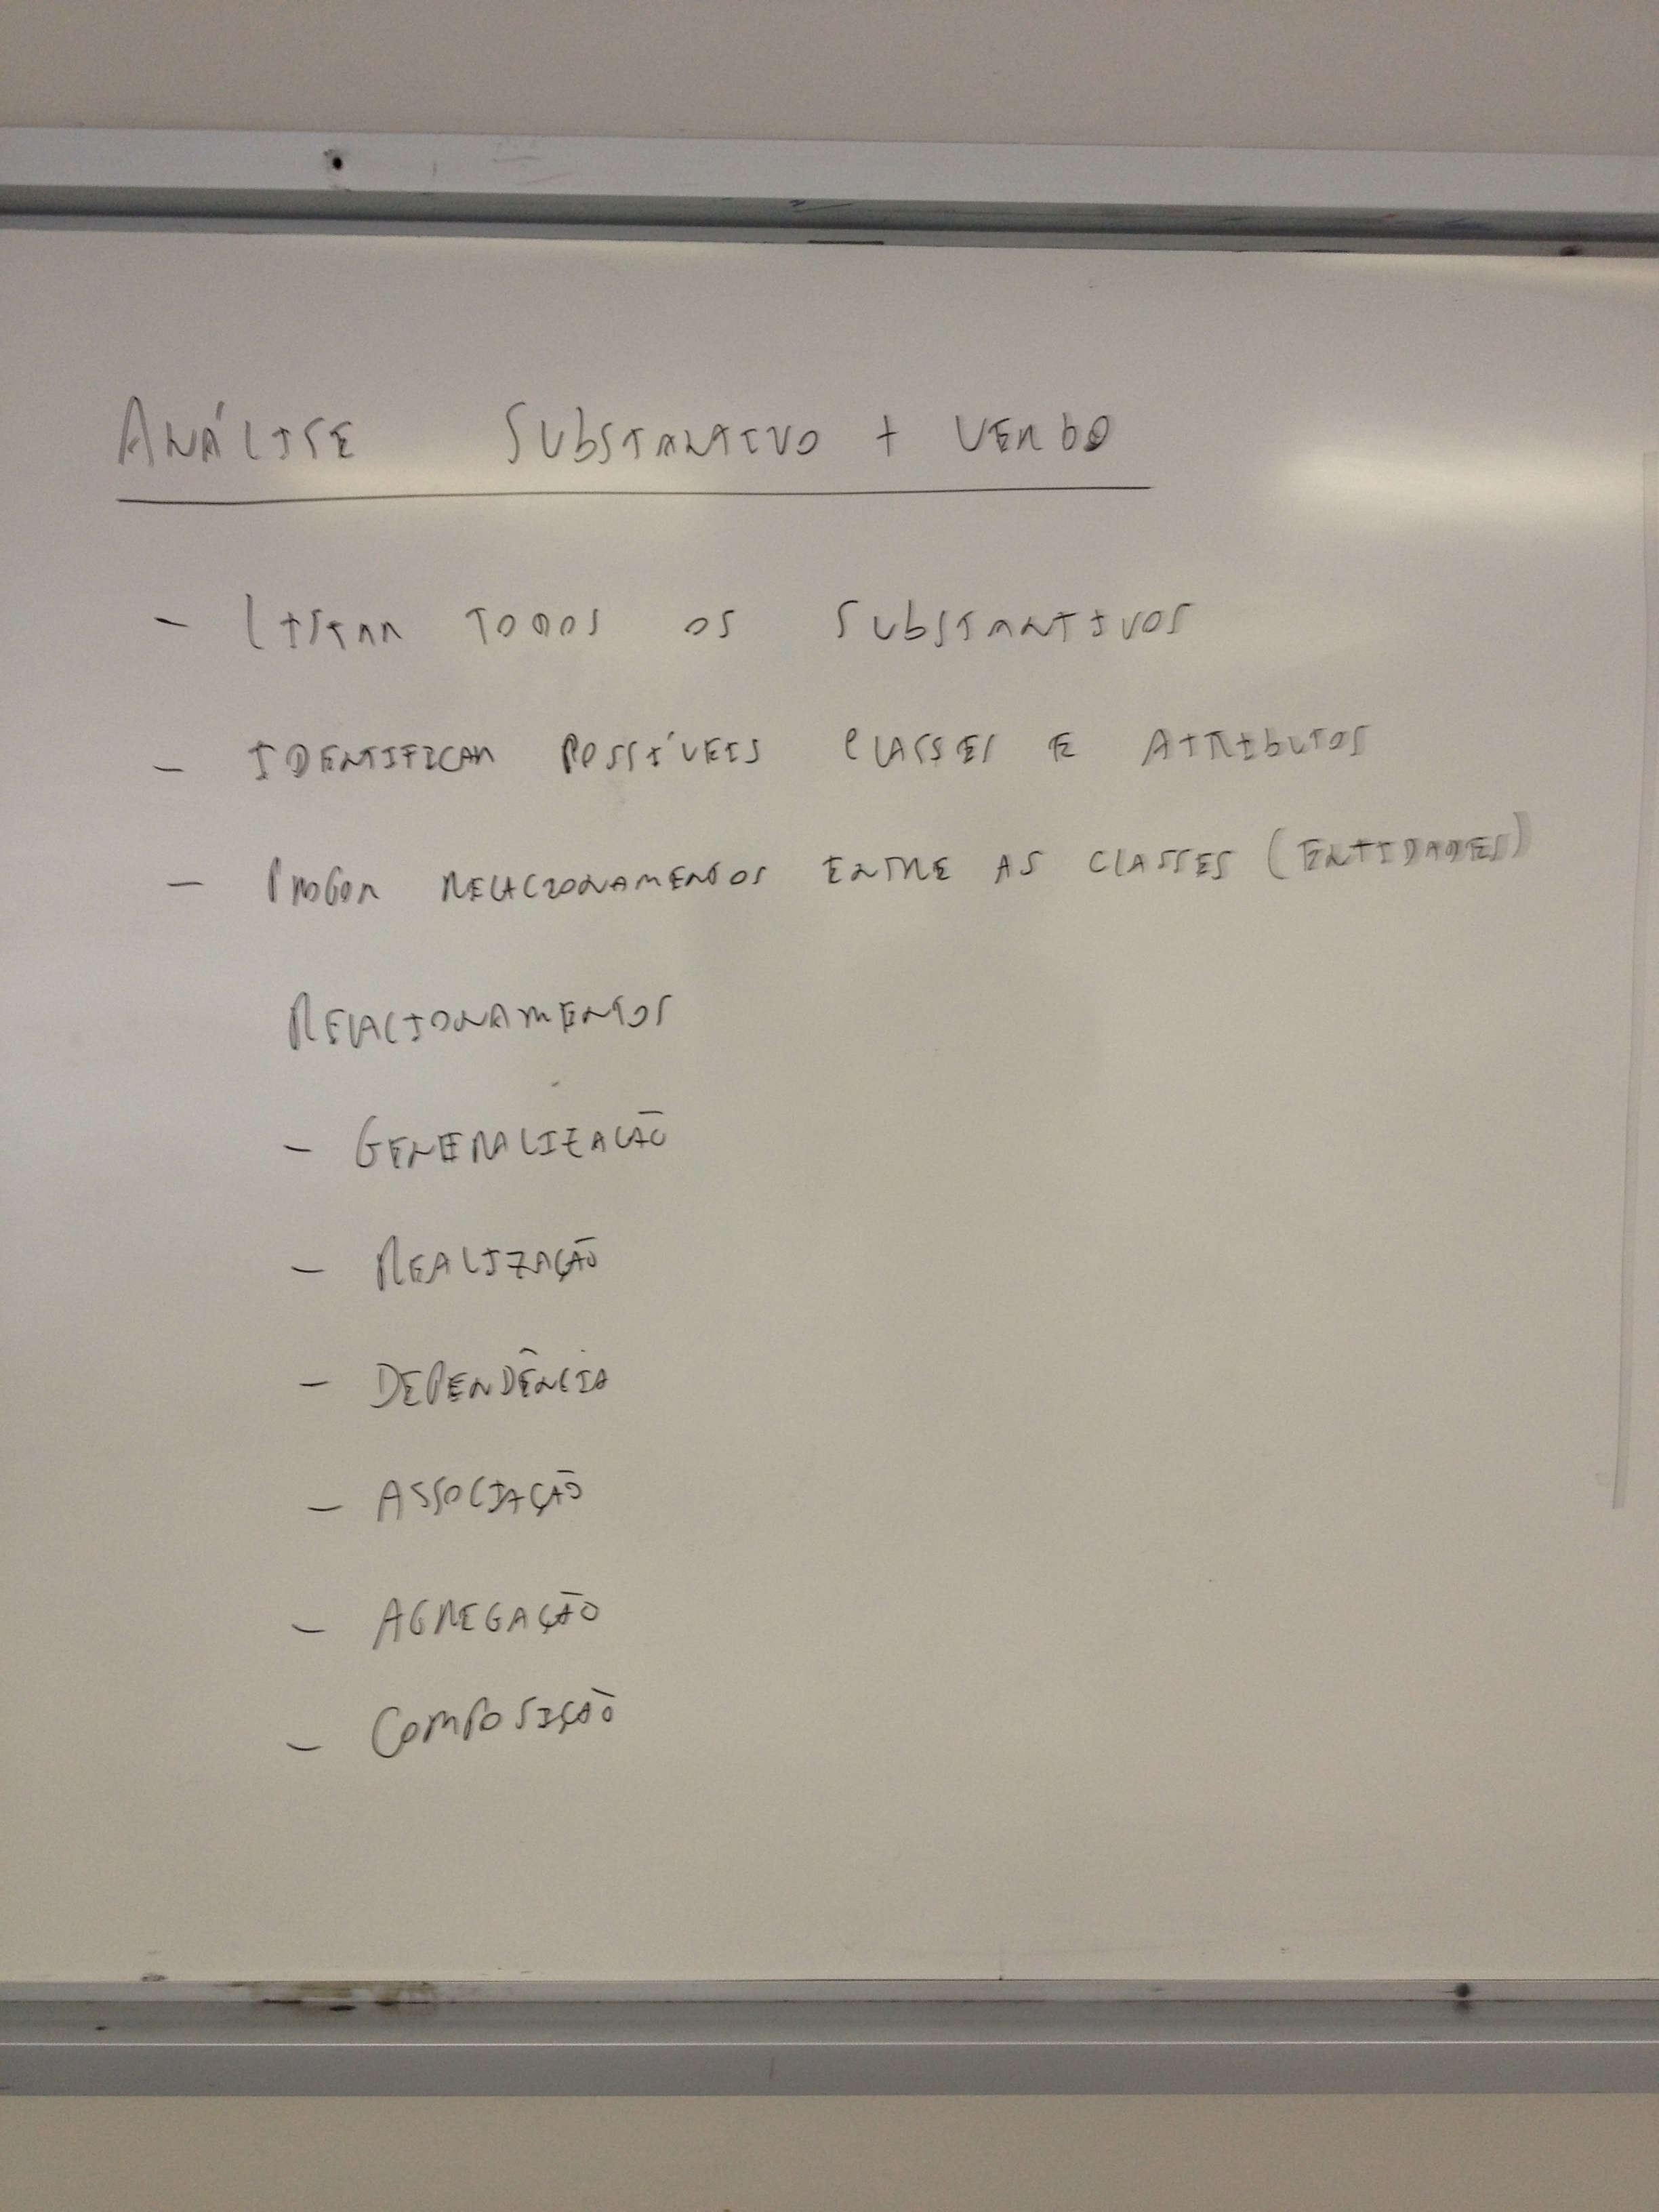 ANÁLISE SUBSTANTIVO + VERBO
- LISTAR TODOS OS SUBSTANTIVOS
- IDENTIFICAR POSSÍVEIS CLASSES E ATRIBUTOS
- PROPOR RELACIONAMENTOS ENTRE AS CLASSES (ENTIDADES)
RELACIONAMENTOS
- GENERALIZAÇÃO
- REALIZAÇÃO
- DEPENDÊNCIA
- ASSOCIAÇÃO
- AGREGAÇÃO
- COMPOSIÇÃO